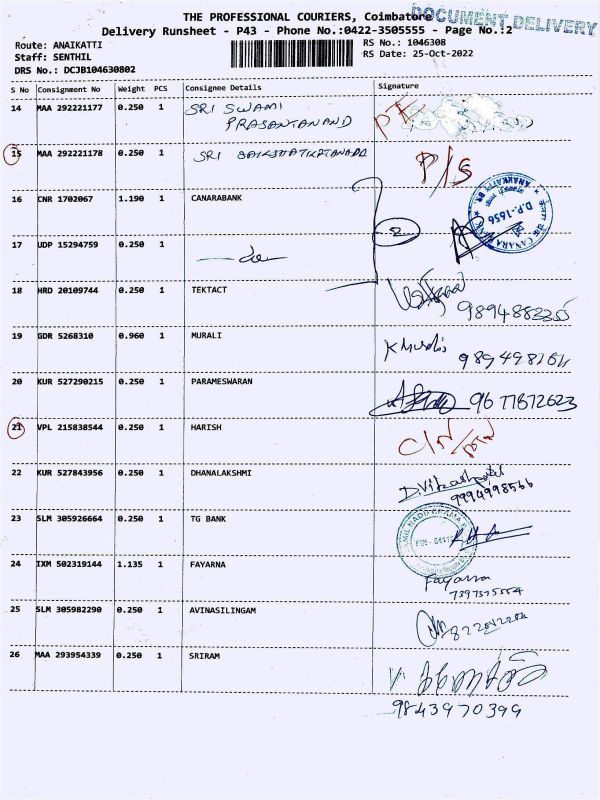 THE PROFESSIONAL COURIERS, Coimbatore
DOCUMENT DELIVERY
Delivery Runsheet - P43 - Phone No.:0422-3505555 - Page No.:2
Route: ANAIKATTI
RS No.: 1046308
Staff: SENTHIL
RS Date: 25-Oct-2022
DRS No.: DCJB104630802
S No Consignment No Weight PCS Consignee Details Signature
14 MAA 292221177 0.250 1 SRI SWAMI
PRASANTANAND
15 MAA 292221178 0.250 1 SRI P/S
16 CNR 1702067 1.190 1 CANARABANK
D.P.-1656
17 UDP 15294759 0.250 1
18 HRD 20109744 0.250 1 TEKTACT
9894883355
19 GDR 5268310 0.960 1 MURALI K Murali
20 KUR 527290215 0.250 1 PARAMESWARAN 9677872623
21 VPL 215838544 0.250 1 HARISH
22 KUR 527843956 0.250 1 DHANALAKSHMI
9994998566
23 SLM 305926664 0.250 1 TG BANK
24 IXM 502319144 1.135 1 FAYARNA Fayarna
7397375554
25 SLM 305982290 0.250 1 AVINASILINGAM
26 MAA 293954339 0.250 1 SRIRAM
9843970399